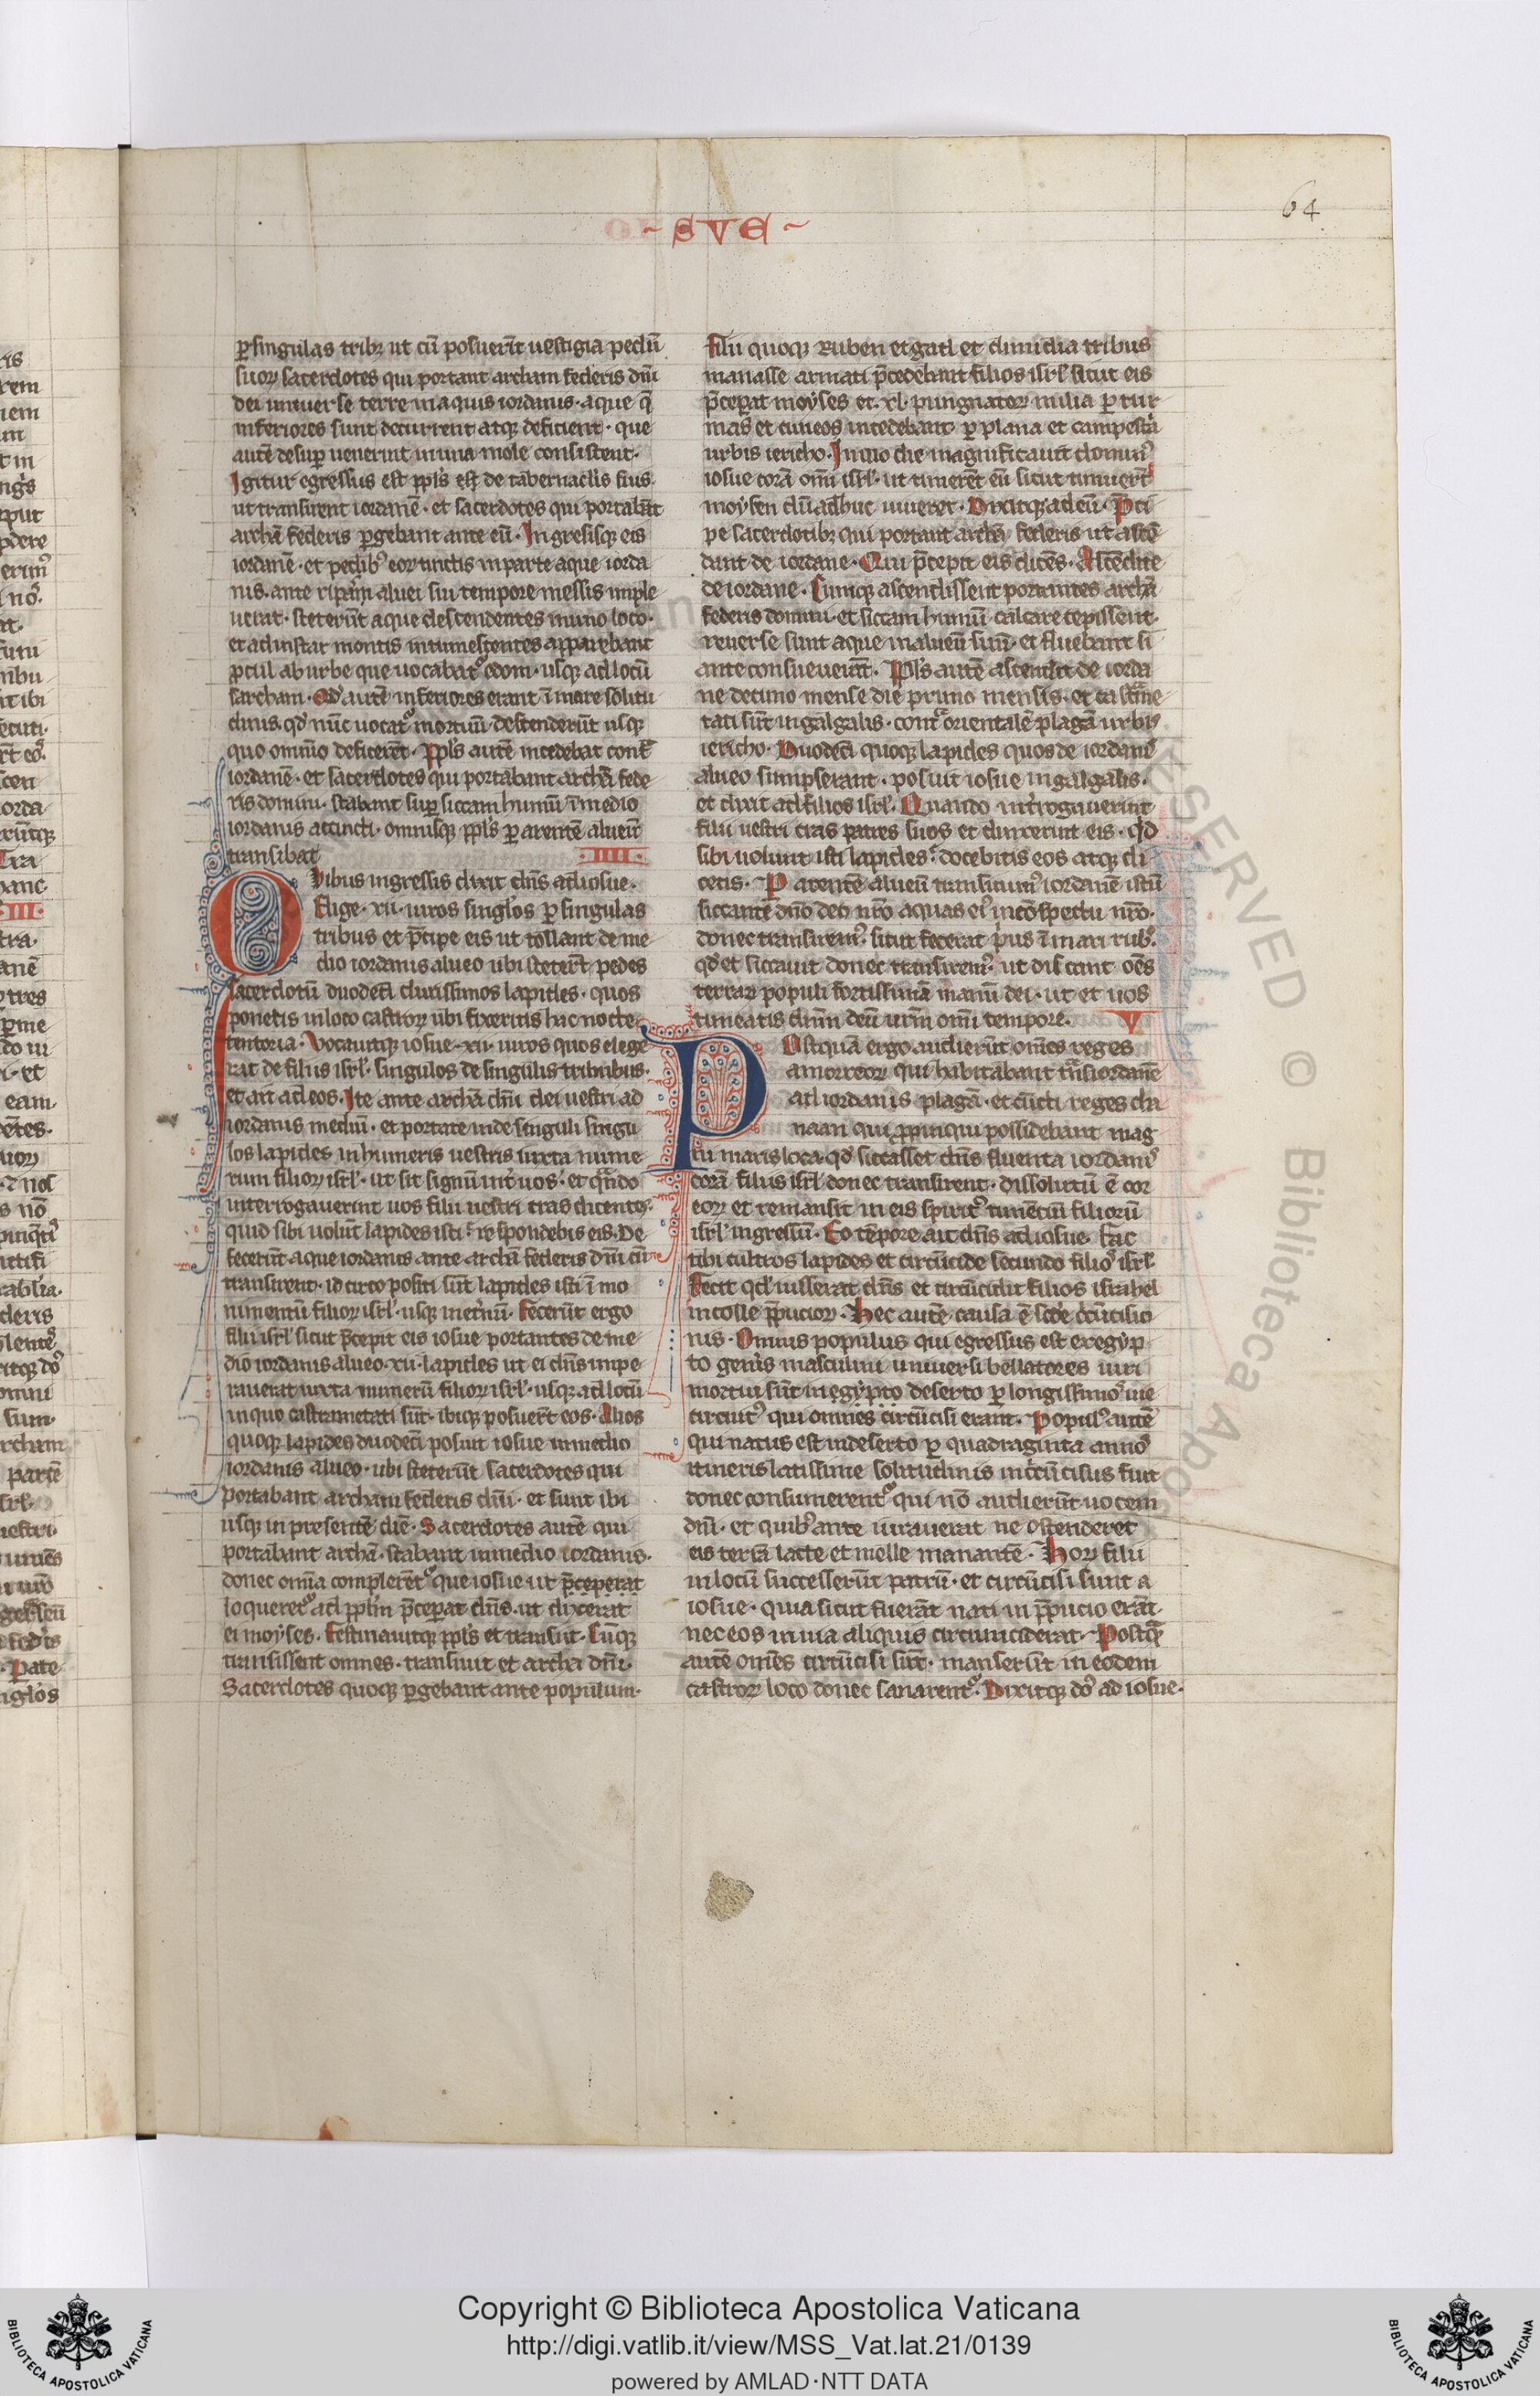 64
~ SVE ~
ꝑ singulas tribꝫ ut cū posuerīt uestigia pedū
suoꝝ sacerdotes qui portant archam federis dn̄i
dei uniuerse terre in aquis iordanis · aque q̄
inferiores sunt decurrent atqꝫ deficient · que
autē desuꝑ uenerint in una mole consistent ·
Igitur egressus est ppl̄s est de tabernacl̄is suis ·
ut transirent iordanē · et sacerdotes qui portabāt
archā federis ꝑgebant ante eū · Ingressisqꝫ eis
iordanē · et pedibꝰ eoꝝ tinctis in parte aque iorda
nis · ante ripam alueí sui tempore messis imple
uerat · steterūt aque descendentes in uno loco ·
et ad instar montis intumescentes apparebant
ꝓcul ab urbe que uocabat᷑ edom · usqꝫ ad locū
sarcham · Qd̄ autē inferiores erant ī mare solitu
dinis · qd̄ nūc uocat᷑ mortuū · descenderūt usqꝫ
quo omīno deficerēt · Ppl̄s autē incedebat cont̄
iordanē · et sacerdotes qui portabant archā fede
ris domini · stabant suꝑ siccam humū ī medio
iordanis accincti · omnisqꝫ ppl̄s ꝑ arentē alueū
transibat · IIII ·
QVibus ingressis dixit dn̄s ad iosue ·
Elige · xii · uiros singl̄os ꝑ singulas
tribus et p̄cipe eis ut tollant de me
dio iordanis alueo ubi steterūt pedes
sacerdotū duodecī durissimos lapides · quos
ponetis in loco castroꝝ ubi fixeritis hac nocte
tentoria · Vocauitqꝫ iosue · xii · uiros quos elege
rat de filiis isrl̄ · singulos de singulis tribubus ·
et ait ad eos · Ite ante archā dn̄i dei uestri ad
iordanis mediū · et portate inde singuli singu
los lapides in humeris uestris iuxta nume
rum filioꝝ isrl̄ · ut sit signū int̄ uos · et qn̄do
interrogauerint uos filii uestri cras dicentes ·
quid sibi uolūt lapides isti · respondebis eis · De
fecerūt aque iordanis ante archā federis dn̄i cū
transirent · idcirco positi sūt lapides isti ī mo
nimentū filioꝝ isrl̄ · usqꝫ inet̄nū · Fecerūt ergo
filii isrl̄ sicut p̄cepit eis iosue portantes de me
dio iordanis alueo · xii · lapides ut ei dn̄s impe
rauerat iuxta numerū filioꝝ isrl̄ · usqꝫ ad locū
in quo castrametati sūt · ibiqꝫ posuerūt eos · Alios
quoqꝫ lapides duodecī posuit iosue in medio
iordanis alueo · ubi steterūt sacerdotes qui
portabant archam federis dn̄i · et sunt ibi
usqꝫ in presentē diē · Sacerdotes autē qui
portabant archā · stabant in medio iordanis ·
donec omīa complerēt᷑ que iosue ut p̄ceperat
loqueret᷑ ad ppl̄m p̄ceperat dn̄s · ut dixerat
ei moyses · Festinauitqꝫ ppl̄s et transiit · Cūqꝫ
transissent omnes · transiuit et archa dn̄i ·
Sacerdotes quoqꝫ ꝑgebant ante populum ·
filii quoqꝫ Ruben et gad et dimidia tribus
manasse armati p̄cedebant filios isrl̄ sicut eis
p̄ceperat moyses et · xl · pungnatoꝝ milia ꝑ tur
mas et cuneos incedebant ꝑ plana et campestria
urbis iericho · In quo die magnificauit dominꝰ
iosue corā omī isrl̄ · ut timerēt eū sicut timuerūt
moysen dū adhuc uiueret · Dixitqꝫ ad eū · P̄ci
pe sacerdotibꝫ qui portant archā federis ut ascē
dant de iordane · Qui p̄cepit eis dicēs · Ascēdite
de iordane · Cumqꝫ ascendissent portantes archā
federis domini · et siccam humū · calcare cepissent ·
reuerse sunt aque in alueū suū · et fluebant si
ante consueuerāt · Ppl̄s autē ascendit de iorda
ne decimo mense die primo mensis · et castrame
tati sūt in galgalis · contra orientalē plagā urbis
iericho · Duodecī quoqꝫ lapides quos de iordanis
alueo sumpserant · posuit iosue in galgalis ·
et dixit ad filios isrl̄ · Quando int̄rogauerint
filii uestri cras patres suos et dixerint eis · qd̄
sibi uolunt isti lapides · docebitis eos atqꝫ di
cetis · P arentē alueū transiuimꝰ iordanē istū
siccante dn̄o deo nr̄o aquas eiꝰ in cōspectu nr̄o ·
donec transiremꝰ · sicut fecerat prius ī mari rubꝰ ·
qd̄ et siccauit donec transiremꝰ · ut discant oēs
terraꝝ populi fortissimā manū dei · ut et uos
timeatis dn̄m deū ur̄m omī tempore · V
POstquā ergo audierūt omēs reges
amorreoꝝ qui habitabant trāsiordanē
ad iordanis plagā · et cūcti reges cha
naan qui ꝓpinqui possidebant mag
ni maris loca · qd̄ siccasset dn̄s fluenta iordanis
corā filiis isrl̄ donec transirent · dissolutū ē cor
eoꝝ et remansit in eis spiritꝰ timentiū filioꝝ
isrl̄ ingressū · Eo tēpore ait dn̄s ad iosue · Fac
tibi cultros lapides et circūcide secundo filios isrl̄
Fecit qd̄ iusserat dn̄s et circūcidit filios israhel
in colle p̄pucioꝝ · Hec autē causa ē scd̄e circūcisio
nis · Omnis populus qui egressus est ex egyp
to gen̄is masculini uniuersi bellatores uiri
mortui sūt in egypto deserto ꝑ longissimos uie
circuitꝰ qui omnes circūcisi erant · Populꝰ autē
qui natus est in deserto ꝑ quadraginta annos
itineris latissime solitudinis incircūcisus fuit
donec consumerent᷑ qui nō audierūt uocem
dn̄i · et quibꝰ ante iurauerat ne ostenderet
eis terrā lacte et melle manantē · Hoꝝ filii
in locū successerūt patrū · et circūcisi sunt a
iosue · quia sicut fuerāt nati in p̄pucio erāt ·
nec eos in uia aliquis circumciderat · Postq̄
autē omēs circūcisi sūt · manserūt in eodem
castroꝝ loco donec sanarent᷑ · Dixitqꝫ dn̄s ad iosue ·
Copyright © Biblioteca Apostolica Vaticana
http://digi.vatlib.it/view/MSS_Vat.lat.21/0139
powered by AMLAD·NTT DATA